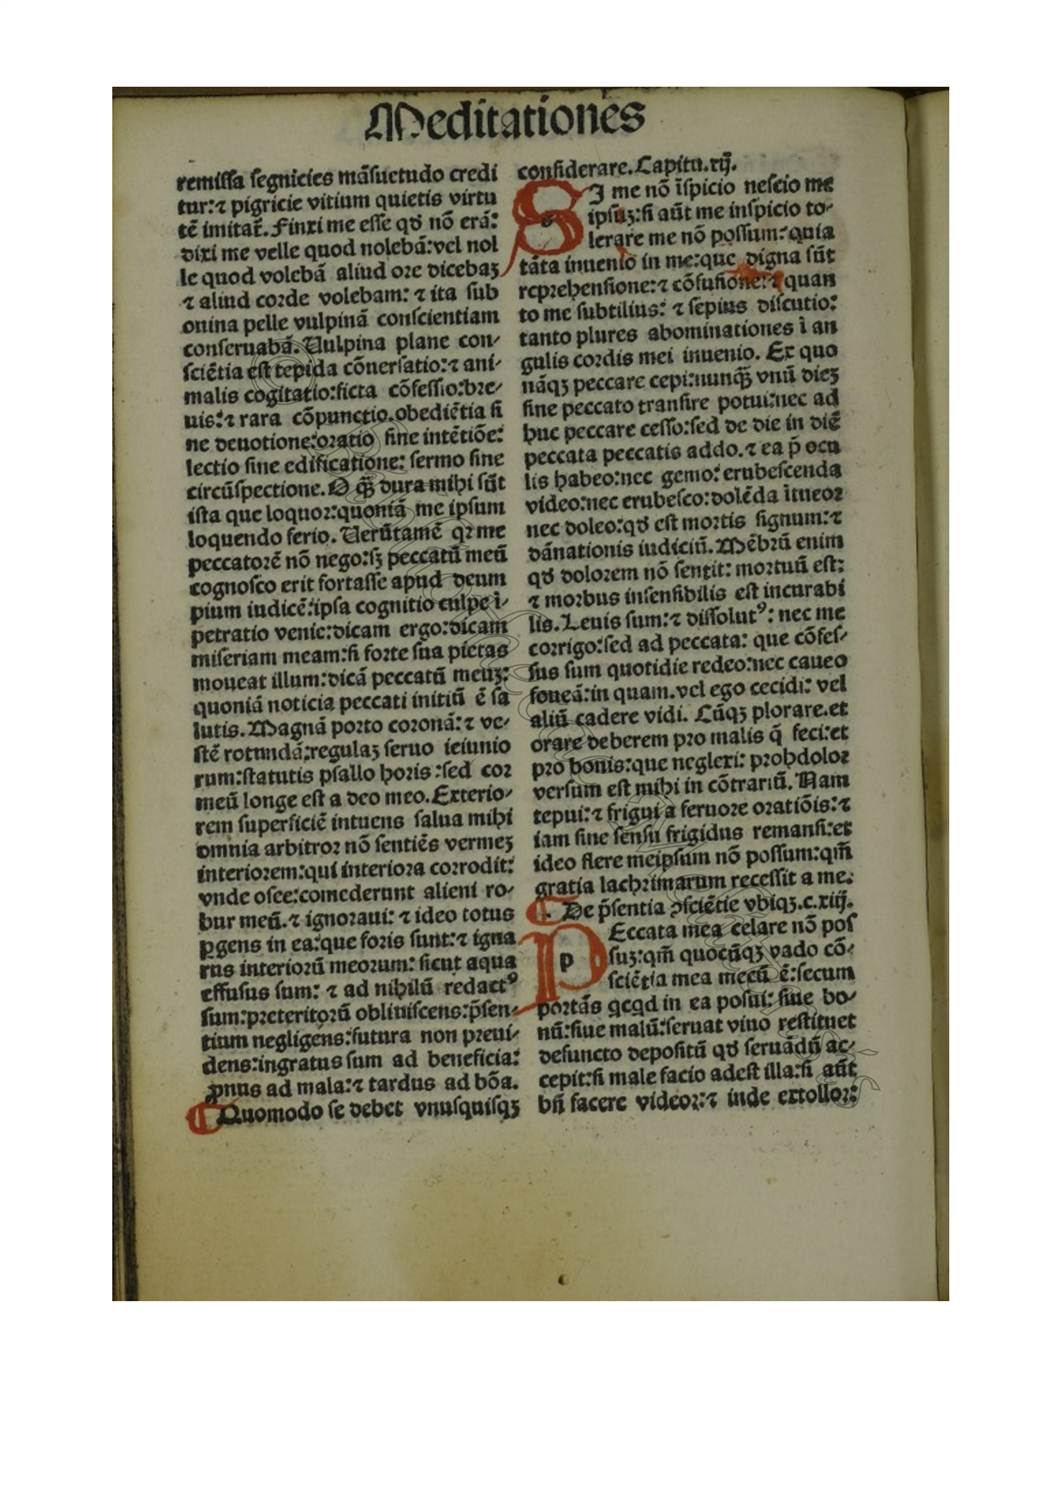 Meditationes
remissa segnicies mãsuetudo credi
tur:⁊ pigricie vitium quietis virtu
tẽ imitat̃. Finxi me esse qđ nõ erã:
dixi me velle quod nolebã:vel nol
le quod volebã aliud ore dicebaʒ
⁊ aliud corde volebam: ⁊ ita sub
onina pelle vulpinã conscientiam
conseruabã. Uulpina plane con-
sciẽtia est tepida cõuersatio:⁊ ani-
malis cogitatio:ficta cõfessio:bre-
uis:⁊ rara cõpunctio.obediẽtia si
ne deuotione:oratio sine intẽtiõe:
lectio sine edificatione: sermo sine
circũspectione. O q̃ȝ dura mihi sũt
ista que loquor:quoniã me ipsum
loquendo ferio. Uerũtamẽ qꝛ me
peccatorẽ nõ nego:sʒ peccatũ meũ
cognosco erit fortasse apud deum
pium iudicẽ:ipsa cognitio culpe ĩ-
petratio venie:dicam ergo:dicam
miseriam meam:si forte sua pietas
moueat illum:dicã peccatũ meuʒ:
quoniã noticia peccati initiũ ẽ sa
lutis. Magnã porto coronã: ⁊ ve-
stẽ rotundã:regulaʒ seruo ieiunio
rum:statutis psallo horis:sed cor
meũ longe est a deo meo. Exterio-
rem superficiẽ intuens salua mihi
omnia arbitror nõ sentiẽs vermeʒ
interiorem:qui interiora corrodit:
vnde osee:comederunt alieni ro-
bur meũ.⁊ ignoraui: ⁊ ideo totus
ꝑgens in ea:que foris sunt:⁊ igna
rus interiorũ meorum: sicut aqua
effusus sum: ⁊ ad nihilũ redactꝰ
sum:preteritorũ obliuiscens:p̃sen-
tium negligens:futura non preui-
dens:ingratus sum ad beneficia:
ꝓnus ad mala:⁊ tardus ad bõa.
¶ Quomodo se debet vnusquisqʒ
considerare. Capitu.xij.
SI me nõ ĩspicio nescio me
ipsuʒ:si aũt me inspicio to-
lerare me nõ possum:quia
tãta inuenio in me:que digna sũt
reprehensione:⁊ cõfusione:⁊ quan
to me subtilius: ⁊ sepius discutio:
tanto plures abominationes ĩ an
gulis cordis mei inuenio. Ex quo
nãqʒ peccare cepi:nunq̃ȝ vnũ dieʒ
sine peccato transire potui:nec ad
huc peccare cesso:sed de die in diẽ
peccata peccatis addo.⁊ ea p̃ ocu
lis habeo:nec gemo: erubescenda
video:nec erubesco:dolẽda ĩtueor
nec doleo:qđ est mortis signum:⁊
dãnationis iudiciũ. Mẽbrũ enim
qđ dolorem nõ sentit: mortuũ est:
⁊ morbus insensibilis est incurabi
lis. Leuis sum:⁊ dissolutꝰ: nec me
corrigo:sed ad peccata: que cõfes-
sus sum quotidie redeo:nec caueo
foueã:in quam.vel ego cecidi: vel
aliũ cadere vidi. Cũqʒ plorare.et
orare deberem pro malis q̃ feci:et
pro bonis:que neglexi: prohdolor
versum est mihi in cõtrariũ. Nam
tepui:⁊ frigui a feruore oratiõis:⁊
iam sine sensu frigidus remansi:et
ideo flere meipsum nõ possum:qm̃
gratia lachrimarum recessit a me.
¶. De p̃sentia ꝯsciẽtie vbiqʒ.c.xiij.
PEccata mea celare nõ pos
suʒ:qm̃ quocũqʒ vado cõ-
sciẽtia mea mecũ ẽ:secum
portãs qcqd in ea posui: siue bo-
nũ:siue malũ:seruat viuo restituet
defuncto depositũ qđ seruãdũ ac-
cepit:si male facio adest illa:si aũt
bñ facere videor:⁊ inde extollor: